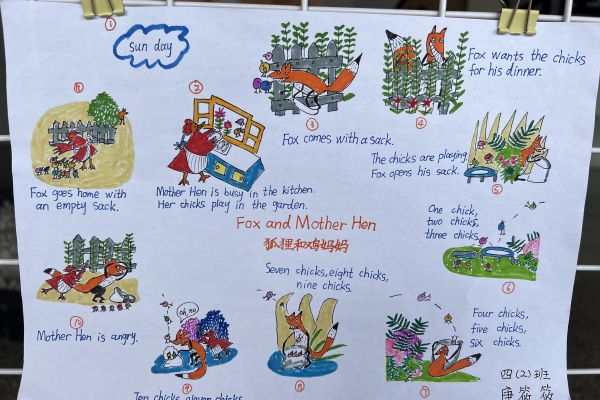 ①
sun day
Fox wants the chicks
for his dinner.
②
③
④
Fox comes with a sack.
The chicks are playing.
Fox opens his sack.
⑤
Mother Hen is busy in the kitchen.
Her chicks play in the garden.
⑪
Fox goes home with
an empty sack.
Fox and Mother Hen
狐狸和鸡妈妈
One chick,
two chicks,
three chicks
⑥
Seven chicks, eight chicks,
nine chicks
Mother Hen is angry.
⑩
oh, no
⑨
⑧
Four chicks,
five chicks,
six chicks.
⑦
Ten chicks, eleven chicks
四(2)班
唐筱筱